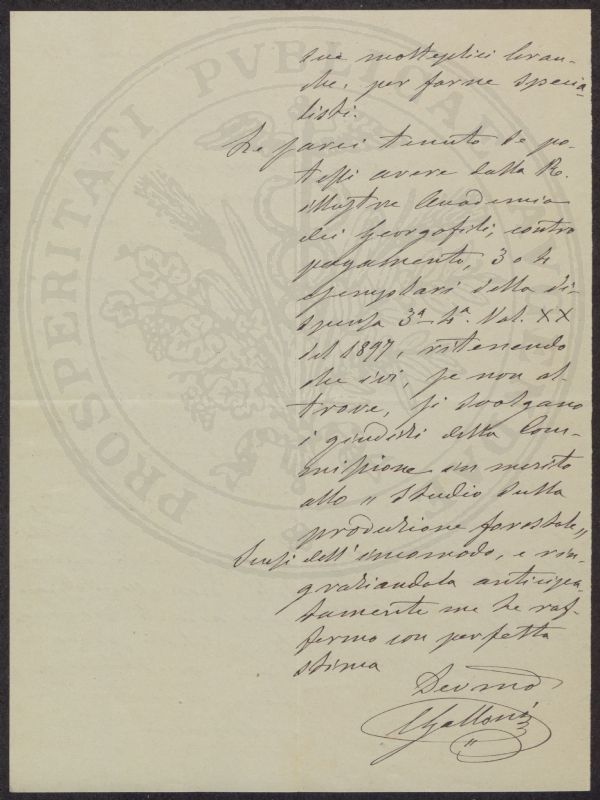 sue molteplici bran-
che, per farne specia-
listi.
Le sarei tenuto se po-
tessi avere dalla R.
illustre Accademia
dei Georgofili, contro
pagamento, 3 o 4
esemplari della di-
spensa 3ª-4ª. Vol. XX
del 1897, ritenendo
che ivi, se non al-
trove, si svolgano
i giudizi della Com-
missione in merito
allo " Studio sulla
produzione forestale "
Scusi dell'incomodo, e rin-
graziandola anticipa-
tamente me Le raf-
fermo con perfetta
stima
Devmo
PROSPERITATI PUBLICAE